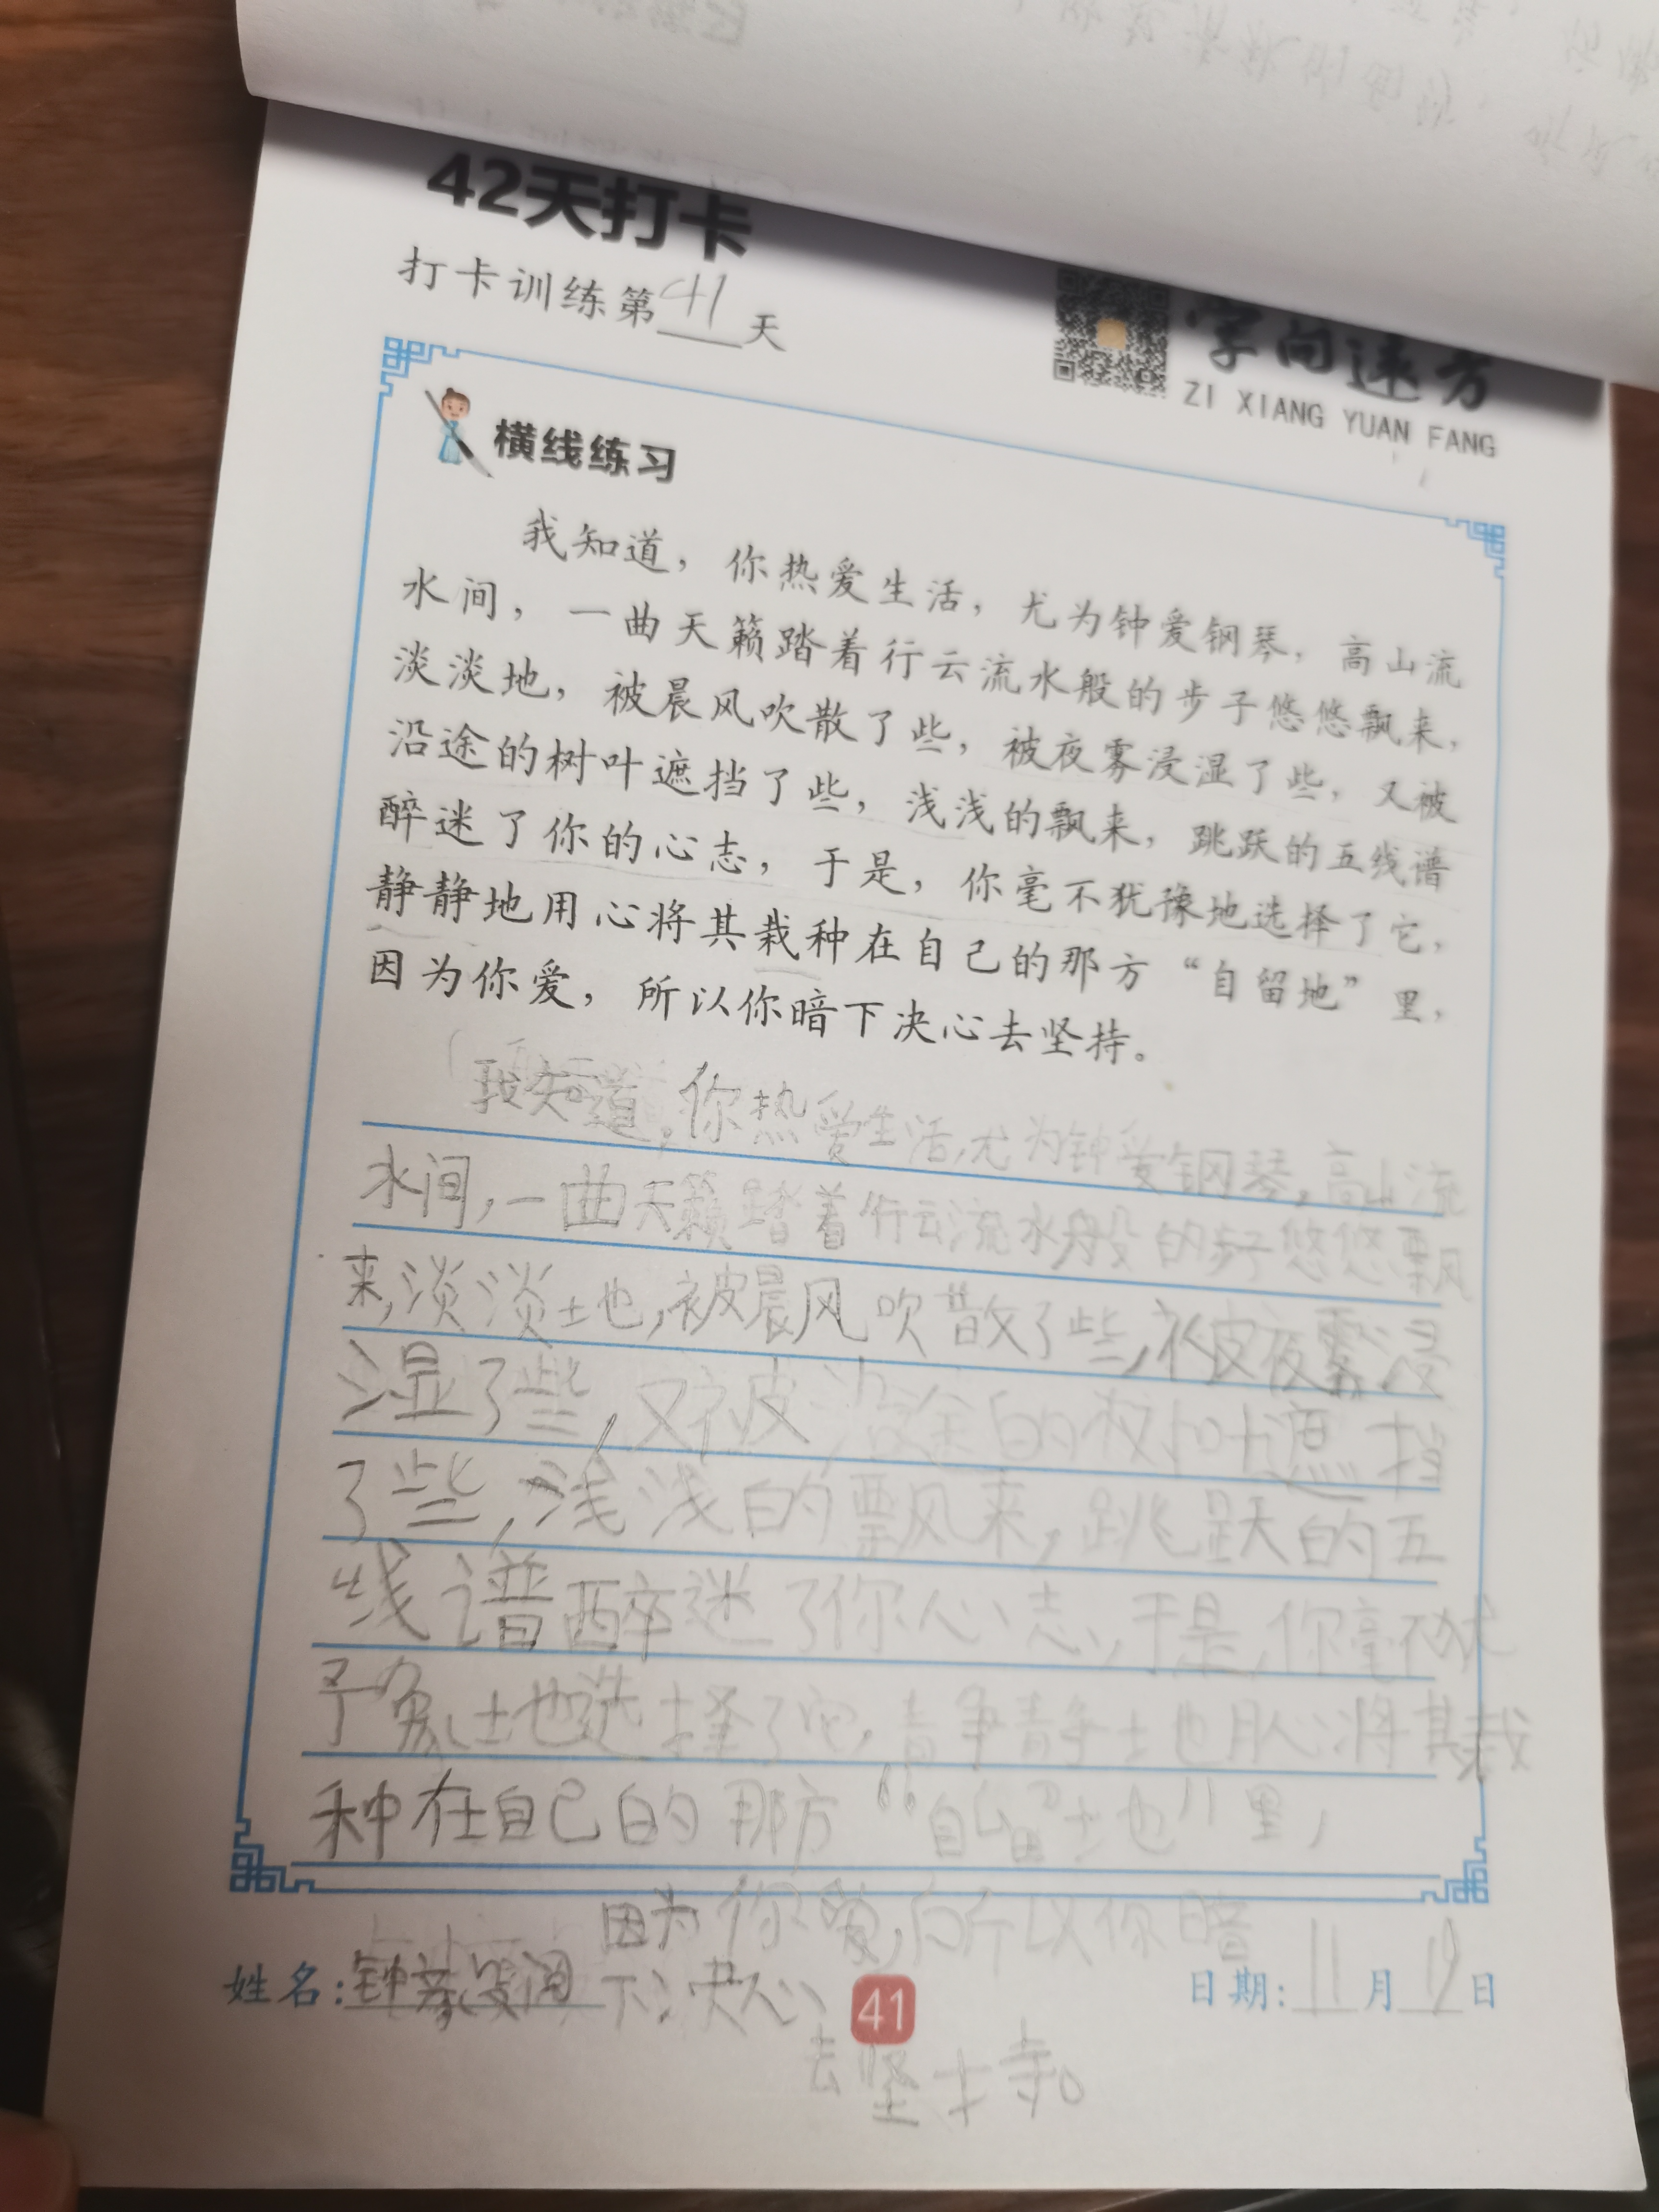 42天打卡
打卡训练第41天
字向远方
ZI XIANG YUAN FANG
横线练习
我知道，你热爱生活，尤为钟爱钢琴，高山流
水间，一曲天籁踏着行云流水般的步子悠悠飘来，
淡淡地，被晨风吹散了些，被夜雾浸湿了些，又被
沿途的树叶遮挡了些，浅浅的飘来，跳跃的五线谱
醉迷了你的心志，于是，你毫不犹豫地选择了它，
静静地用心将其栽种在自己的那方“自留地”里，
因为你爱，所以你暗下决心去坚持。
我知道，你热爱生活，尤为钟爱钢琴，高山流
水间，一曲天籁踏着行云流水般的步子悠悠飘
来，淡淡地，被晨风吹散了些，被夜雾浸
湿了些，又被沿途的树叶遮挡
了些，浅浅的飘来，跳跃的五
线谱醉迷了你心志，于是，你毫不犹
豫地选择了它，静静地用心将其栽
种在自己的那方“自留地”里，
因为你爱，所以你暗
姓名：钟 下决心
41
日期：11月19日
去坚持。